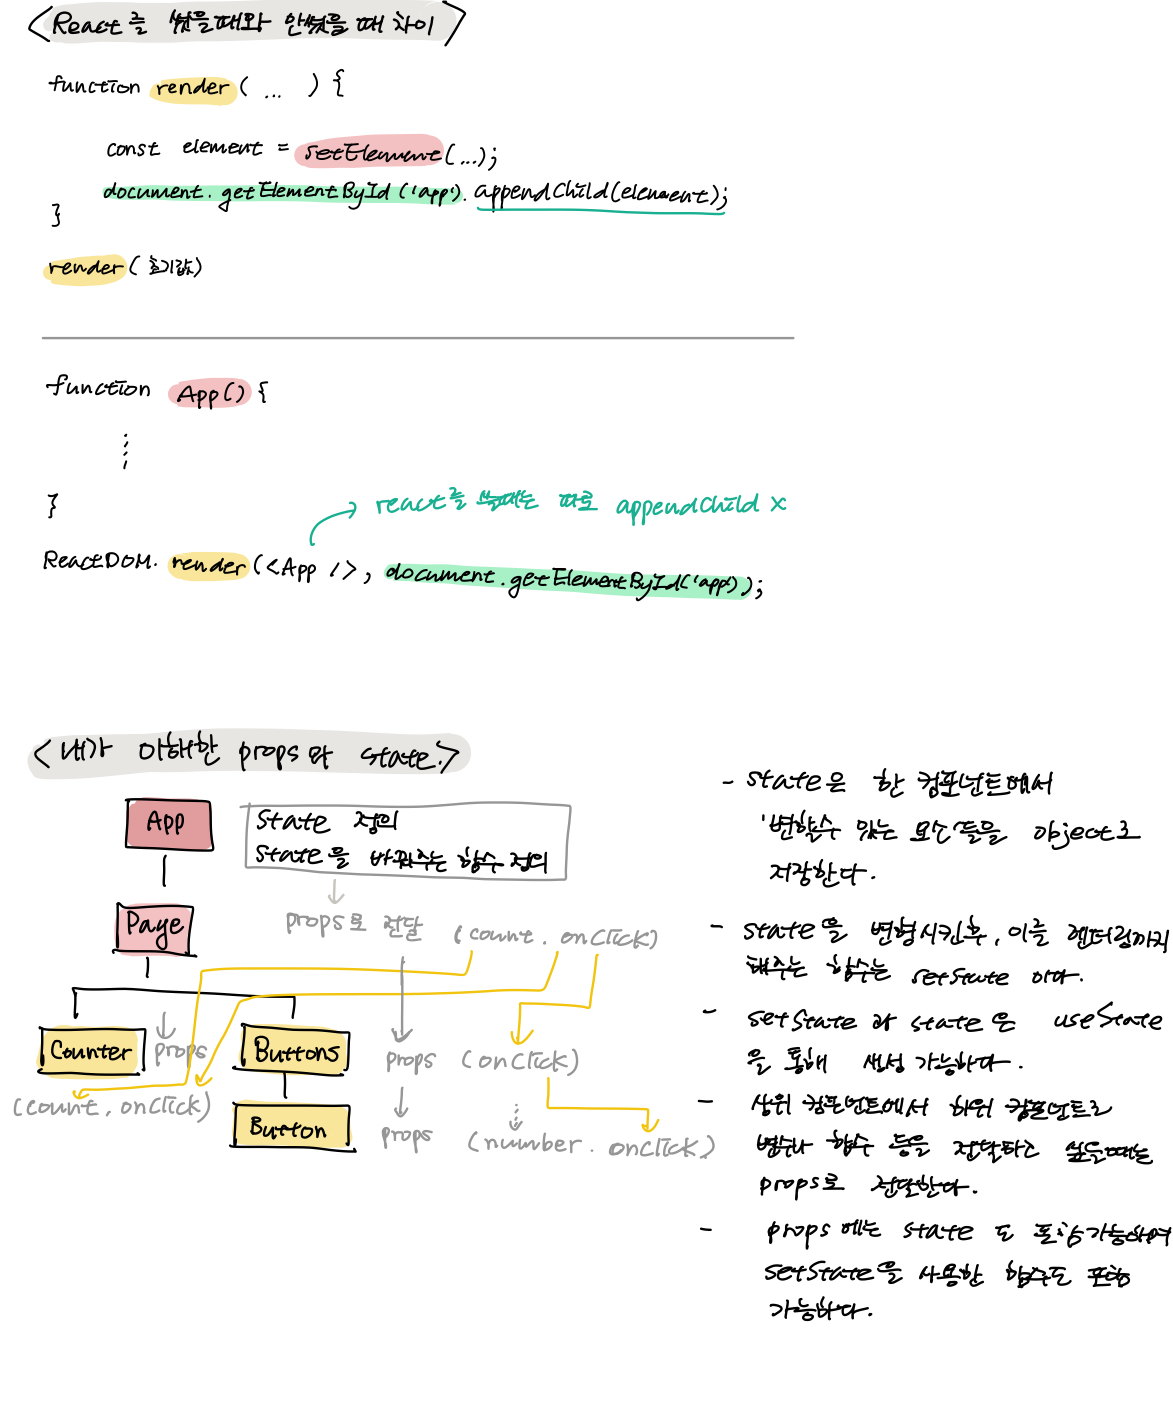 <React를 썼을때와 안썼을때 차이>
function render( ... ) {
const element = setElement(...);
document.getElementById('app').appendChild(element);
}
render(초기값)
function App() {
}
react를 쓸때는 따로 appendChild X
ReactDOM.render(<App />, document.getElementById('app'));
<내가 이해한 props와 state>
App
state 정의
state을 바꿔주는 함수 정의
Page
props로 전달 (count, onClick)
Counter
props
Buttons
props (onClick)
(count, onClick)
Button
props (number, onClick)
- state은 한 컴포넌트에서
변할수 있는 요소들을 object로
저장한다.
- state을 변형시킨후, 이를 렌더링까지
해주는 함수는 setState 이다.
- setState 과 state은 useState
을 통해 생성 가능하다.
- 상위 컴포넌트에서 하위 컴포넌트로
변수나 함수 등을 전달하고 싶을때는
props로 전달한다.
- props에는 state도 포함가능하며
setState을 사용한 함수도 포함
가능하다.